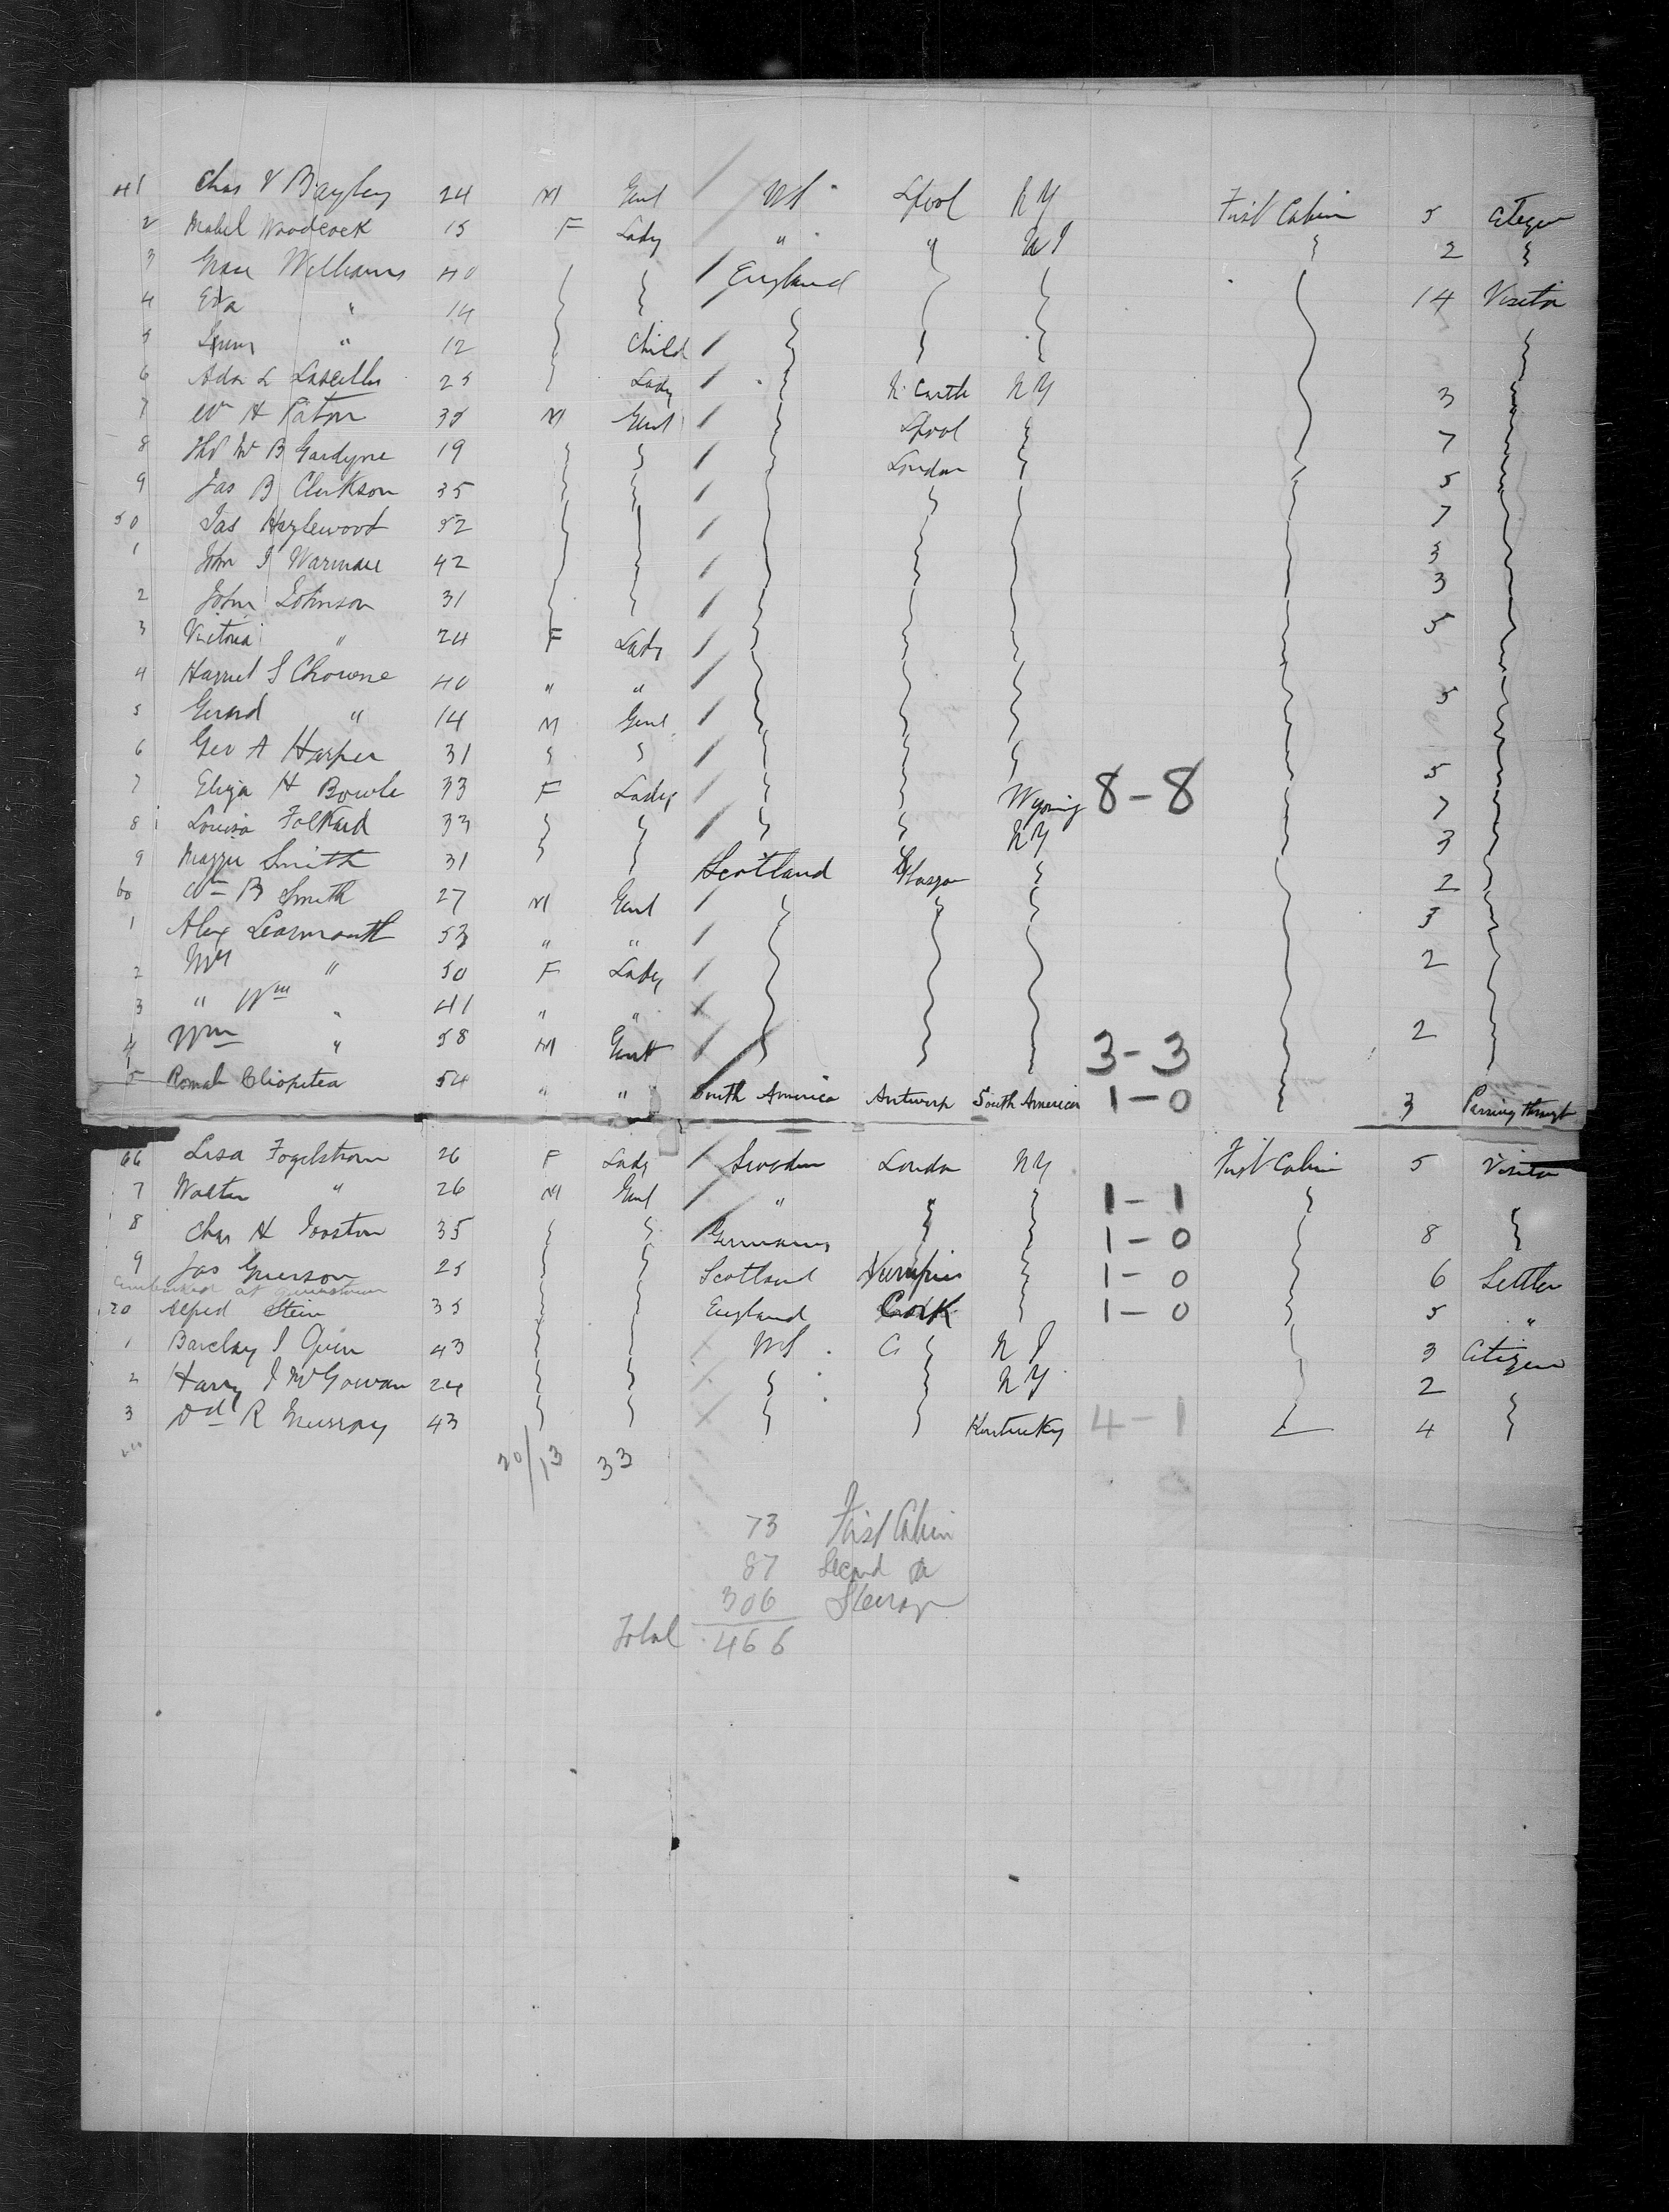 41 Chas V Bayley 24 M Gent US Lpool NY First Cabin 5 Citizen
2 Mabel Woodcock 15 F Lady " " 2
3 Grace Williams 40 England 14 Visitor
4 Eva " 14
5 " 12 Child
6 Ada L Lascelles 25 Lady N. Castle NY 3
7 Wm H Paton 35 M Gent Lpool 7
8 W B Gardyne 19 London 5
9 Jas B Clerkson 35 7
50 Jas Hazlewood 52 3
1 John J 42 3
2 John Johnson 31 5
3 Victoria " 24 F Lady
4 Harriet S Chowne 40 " " 5
5 Gerard " 14 M Gent
6 Geo A Harper 31 5
7 Eliza H Bowle 33 F Lady Wyoming 8-8 7
8 Louisa Folkard 33 NY 3
9 Maggie Smith 31 Scotland Glasgow 2
60 Wm B Smith 27 M Gent 3
1 Alex Learmonth 53 " " 2
2 Mrs " 50 F Lady
3 " Wm " 41 " " 2
4 Wm " 58 M Gent 3-3
5 54 " " South America Antwerp South America 1-0 3 Passing through
66 Lisa Fogelstrom 26 F Lady Sweden London NY First Cabin 5 Visitor
7 Walter " 26 M Gent " " 1-1
8 Chas H 35 Germany 1-0 8
9 Jas Grierson 25 Scotland 1-0 6 Settler
Embarked at Queenstown
70 Alfred Stein 35 England Cork 1-0 5 "
1 Barclay J 43 US N J 3 Citizen
2 Harry J McGowan 24 NY 2
3 Dd R Murray 43 Kentucky 4-1 4
20/13 33
73 First Cabin
87 Second
306 Steerage
Total 466